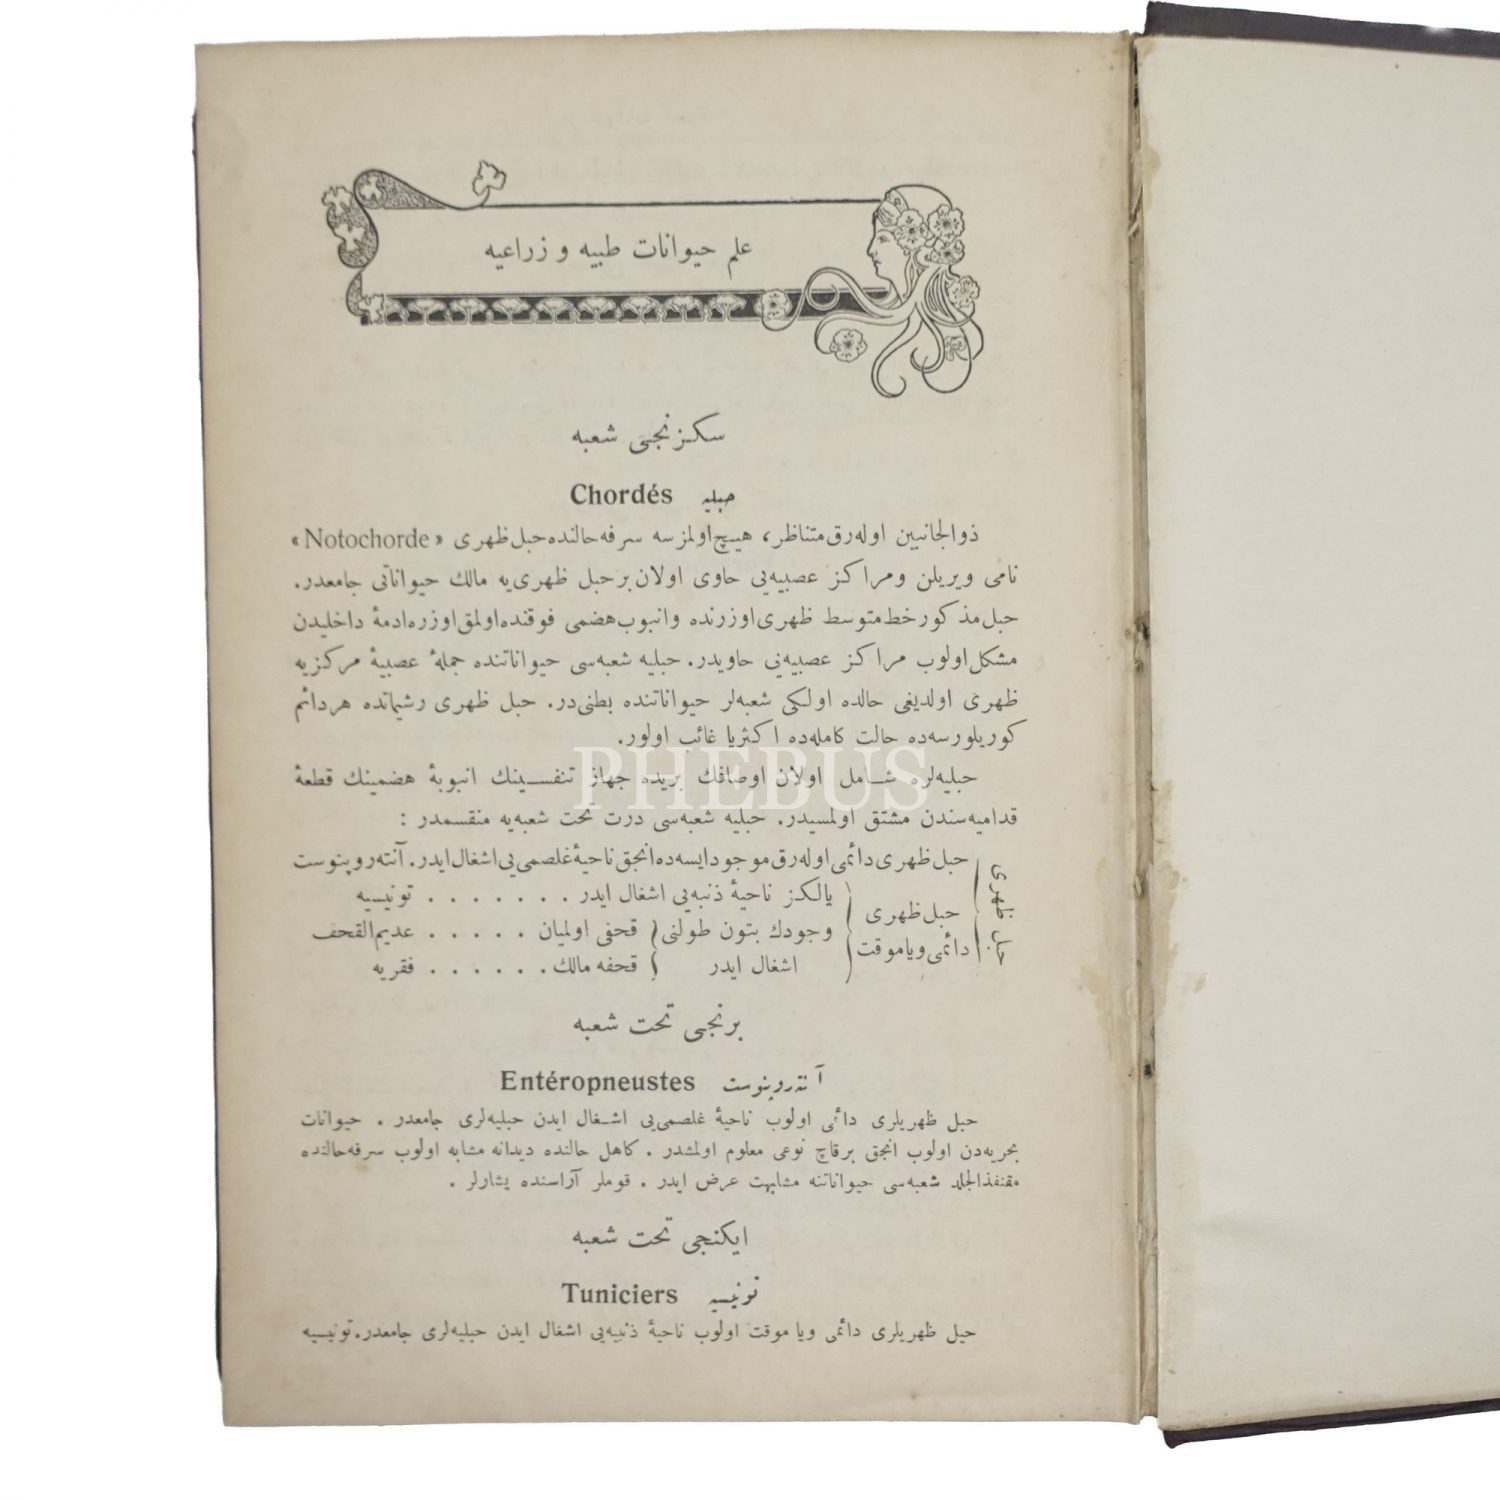 علم حیوانات طبیه و زراعیه
سکزنجی شعبه
حبلیه Chordés
ذوالجانبین اوله‌رق متناظر، هیچ اولمزسه سرفه حالنده حبل ظهری «Notochorde»
نامی ویریلن ومراکز عصبیه‌یی حاوی اولان برحبل ظهری‌یه مالك حیواناتی جامعدر.
حبل مذکور خط متوسط ظهری اوزرنده وانبوب هضمی فوقنده اولمق اوزره ادمۀ داخلیدن
مشکل اولوب مراکز عصبیه‌یی حاویدر. حبلیه شعبه‌سی حیواناتنده جملۀ عصبیۀ مرکزیه
ظهری اولدیغی حالده اولکی شعبه‌لر حیواناتنده بطنی‌در. حبل ظهری رشیماتده هردائم
کوریلورسه‌ده حالت کامله‌ده اکثریا غائب اولور.
حبلیه‌لره شامل اولان اوصافك بریده جهاز تنفسینك انبوبۀ هضمینك قطعۀ
قدامیه‌سندن مشتق اولمسیدر. حبلیه شعبه‌سی درت تحت شعبه‌یه منقسمدر :
حبل ظهری
حبل ظهری دائمی اوله‌رق موجود ایسه‌ده انجق ناحیۀ غلصمی‌یی اشغال ایدر. آنته‌روپنوست
حبل ظهری دائمی ویاموقت
یالکز ناحیۀ ذنبه‌یی اشغال ایدر . . . . . . . تونیسیه
وجودك بتون طولنی اشغال ایدر
قحفی اولمیان . . . . . عدیم‌القحف
قحفه مالك . . . . . . فقریه
برنجی تحت شعبه
آنته‌روپنوست Entéropneustes
حبل ظهریلری دائمی اولوب ناحیۀ غلصمی‌یی اشغال ایدن حبلیه‌لری جامعدر . حیوانات
بحریه‌دن اولوب انجق برقاچ نوعی معلوم اولمشدر . کاهل حالنده دیدانه مشابه اولوب سرفه حالنده
مقنفذالجلد شعبه‌سی حیواناتنه مشابهت عرض ایدر . قوملر آراسنده یشارلر .
ایکنجی تحت شعبه
تونیسیه Tuniciers
حبل ظهریلری دائمی ویا موقت اولوب ناحیۀ ذنبیه‌یی اشغال ایدن حبلیه‌لری جامعدر. تونیسیه
PHEBUS